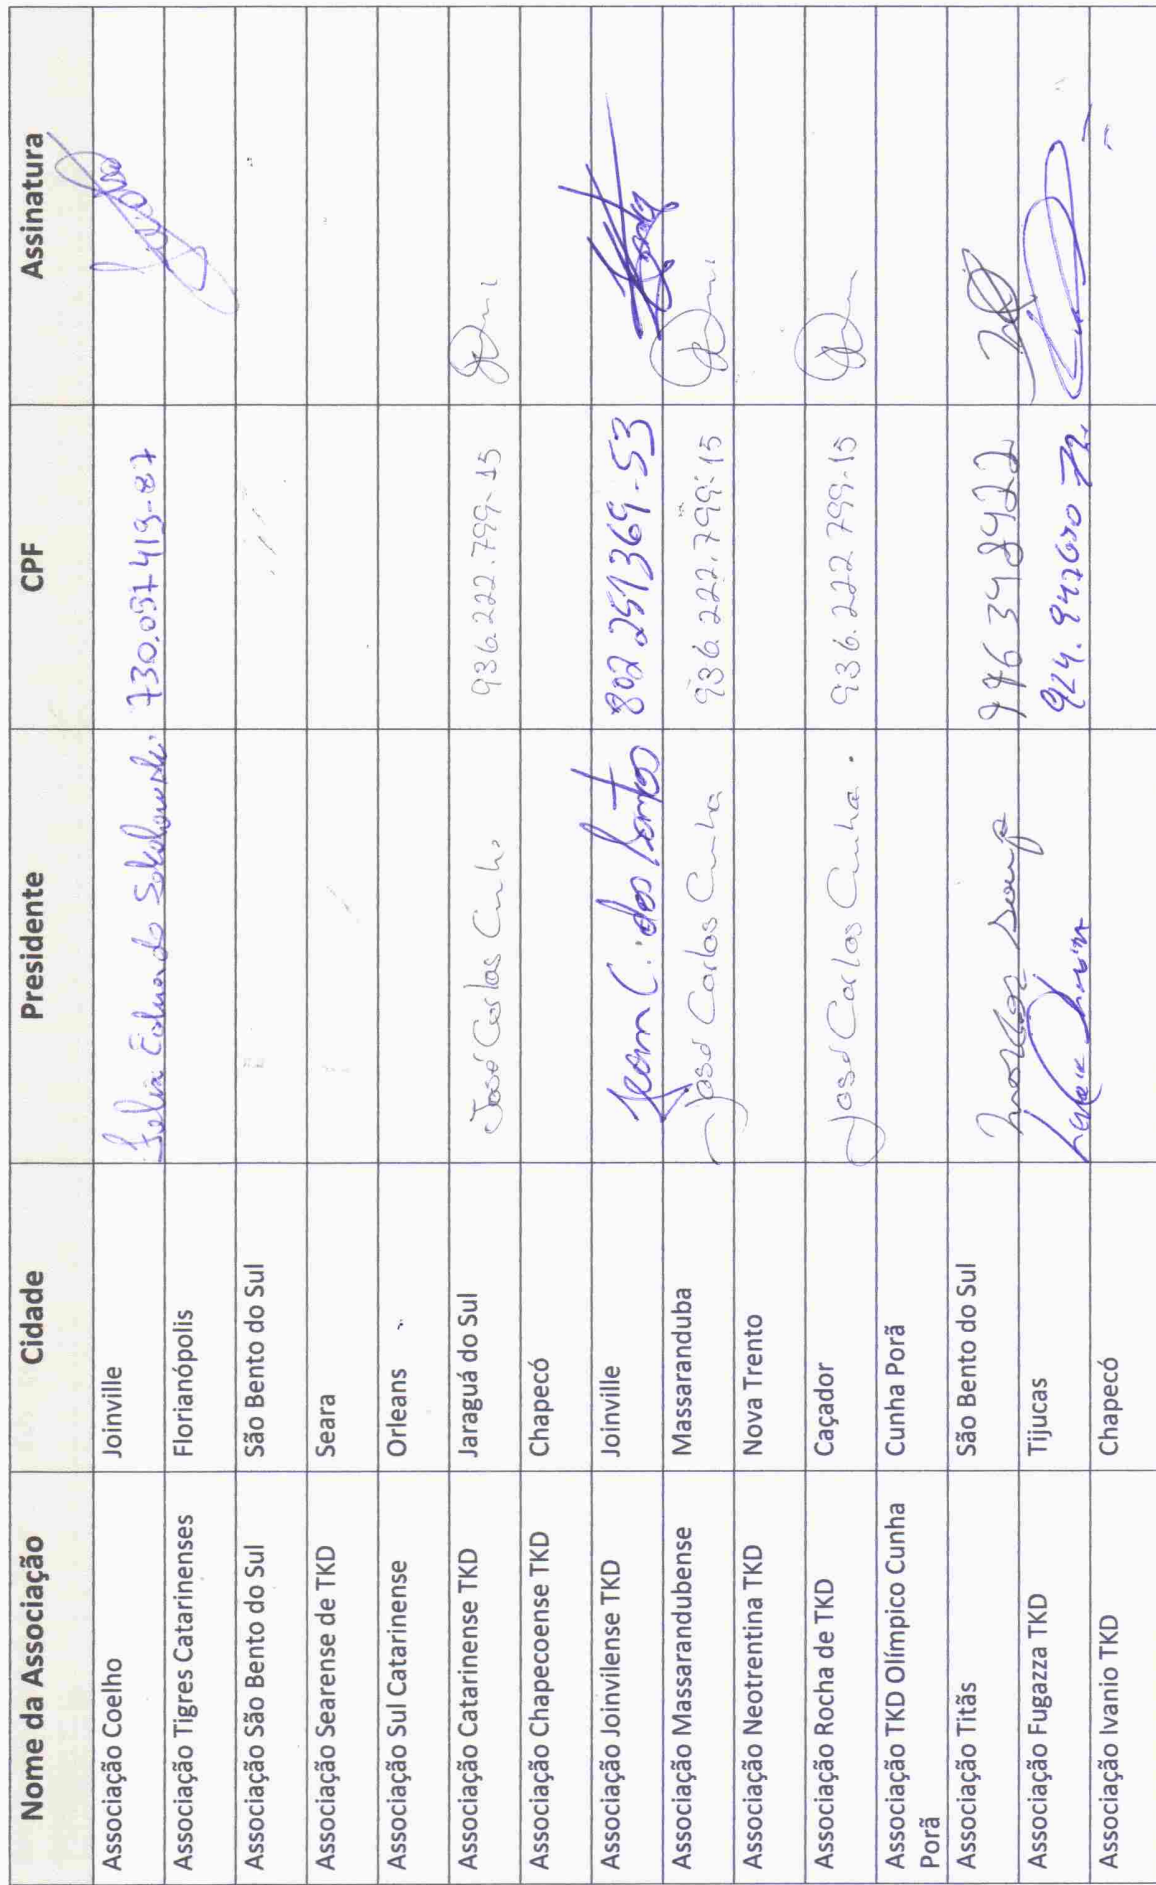 Nome da Associação Cidade Presidente CPF Assinatura
Associação Coelho Joinville Felix Eduardo 730.057419-87
Associação Tigres Catarinenses Florianópolis
Associação São Bento do Sul São Bento do Sul
Associação Searense de TKD Seara
Associação Sul Catarinense Orleans
Associação Catarinense TKD Jaraguá do Sul José Carlos Cunha 936.222.799-15
Associação Chapecoense TKD Chapecó
Associação Joinvilense TKD Joinville Jean C. dos Santos 802.251369-53
Associação Massarandubense Massaranduba José Carlos Cunha 936.222.799-15
Associação Neotrentina TKD Nova Trento
Associação Rocha de TKD Caçador José Carlos Cunha. 936.222.799-15
Associação TKD Olímpico Cunha Cunha Porã
Porã
Associação Titãs São Bento do Sul
Associação Fugazza TKD Tijucas
Associação Ivanio TKD Chapecó